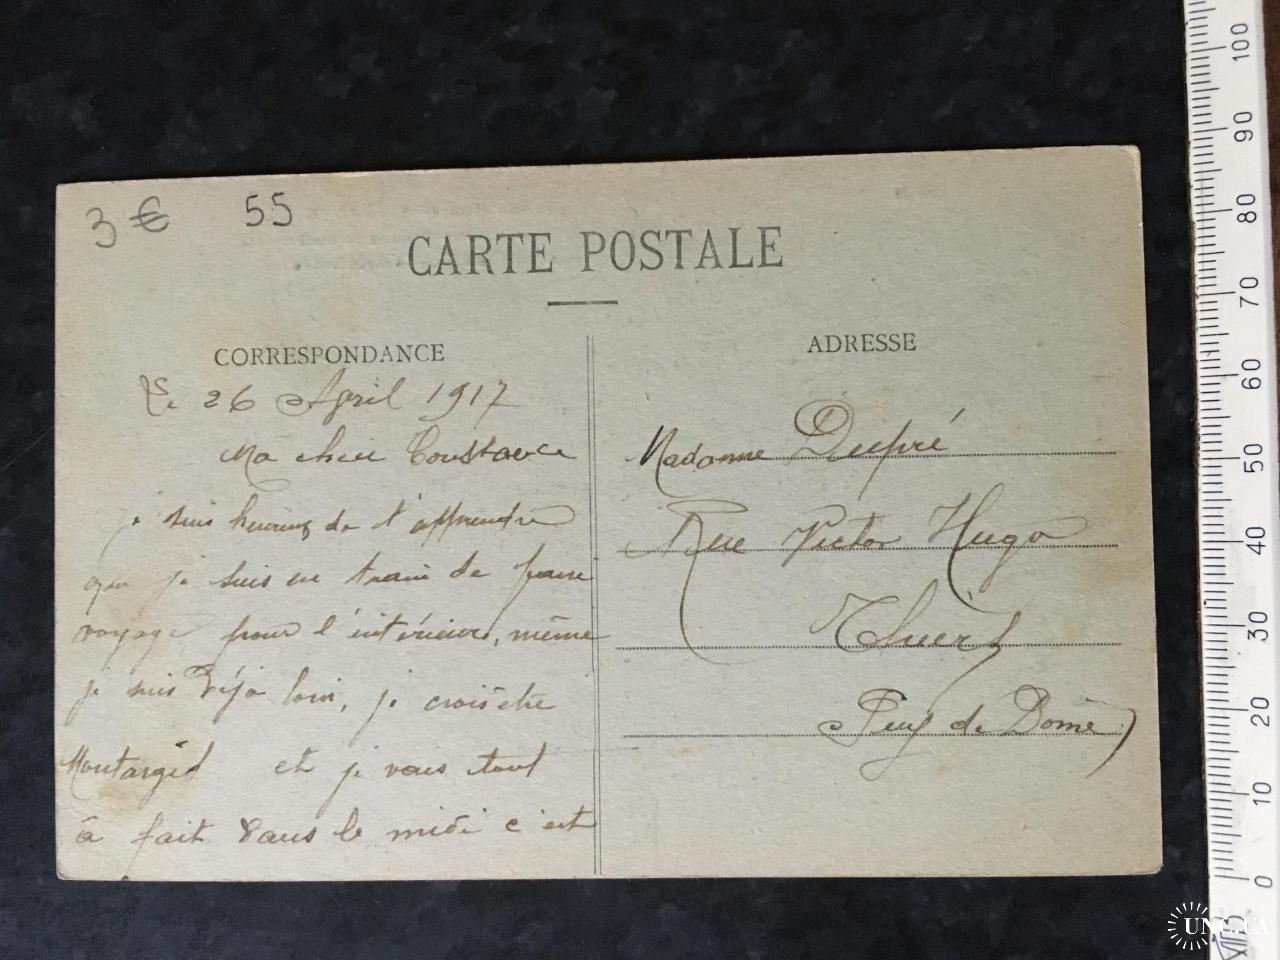 3 € 55
CARTE POSTALE
CORRESPONDANCE
Le 26 April 1917
Ma cher Constance
je suis heureux de t'apprendre
que je suis en train de faire
voyage pour l'intérieur, même
je suis déja loin, je crois être
Montargis et je vais tout
à fait dans le midi c'est
ADRESSE
Madame Dupré
Rue Victor Hugo
Thiers
Puy de Dome
100
90
80
70
60
50
40
30
20
10
0
UNC.UA